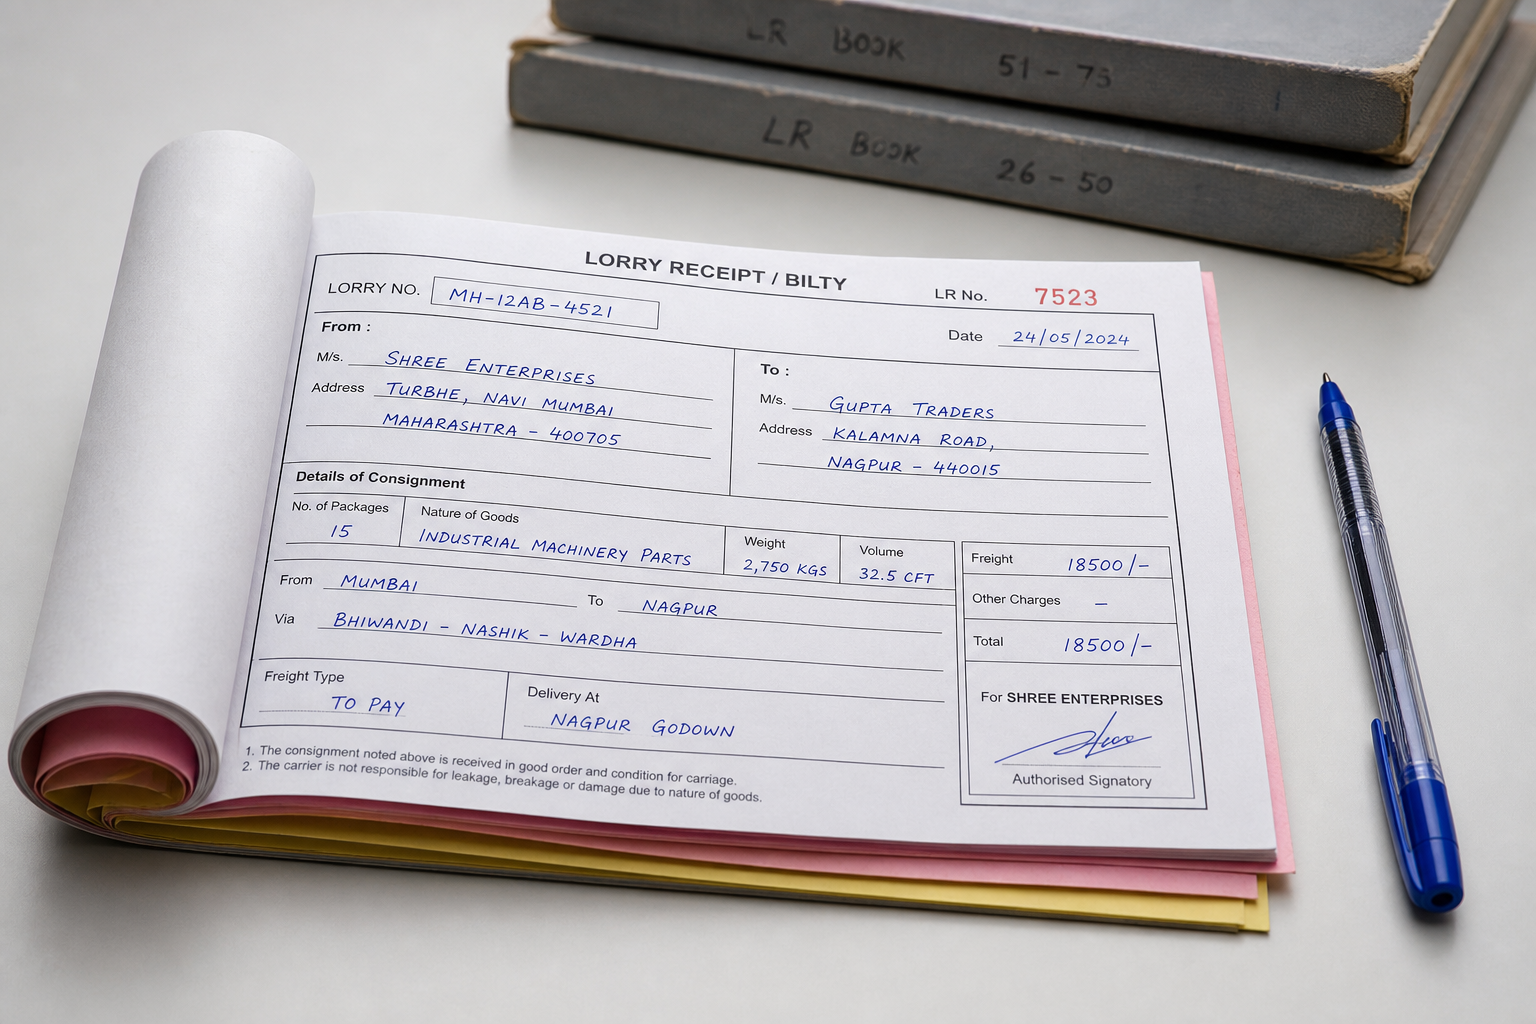 LR BOOK 51 - 75
LR BOOK 26 - 50
LORRY RECEIPT / BILTY
LORRY NO. MH-12AB-4521
LR No. 7523
Date 24/05/2024
From :
M/s. SHREE ENTERPRISES
Address TURBHE, NAVI MUMBAI
MAHARASHTRA - 400705
To :
M/s. GUPTA TRADERS
Address KALAMNA ROAD,
NAGPUR - 440015
Details of Consignment
No. of Packages Nature of Goods Weight Volume
15 INDUSTRIAL MACHINERY PARTS 2,750 KGS 32.5 CFT
From MUMBAI To NAGPUR
Via BHIWANDI - NASHIK - WARDHA
Freight Type
TO PAY
Delivery At
NAGPUR GODOWN
Freight 18500/-
Other Charges –
Total 18500/-
For SHREE ENTERPRISES
Authorised Signatory
1. The consignment noted above is received in good order and condition for carriage.
2. The carrier is not responsible for leakage, breakage or damage due to nature of goods.